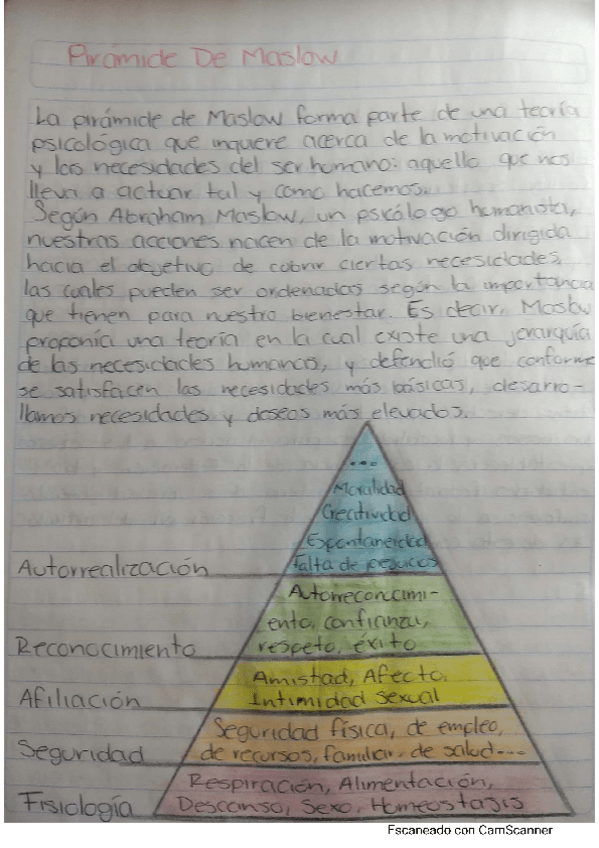 Pirámide De Maslow
La pirámide de Maslow forma parte de una teoría
psicológica que inquiere acerca de la motivación
y las necesidades del ser humano: aquello que nos
lleva a actuar tal y como hacemos.
Según Abraham Maslow, un psicólogo humanista,
nuestras acciones nacen de la motivación dirigida
hacia el objetivo de cubrir ciertas necesidades,
las cuales pueden ser ordenadas según la importancia
que tienen para nuestro bienestar. Es decir, Maslow
proponía una teoría en la cual existe una jerarquía
de las necesidades humanas, y defendió que conforme
se satisfacen las necesidades más básicas, desarro-
llamos necesidades y deseos más elevados.
...
Moralidad
Creatividad
Espontaneidad
Autorrealización Falta de
Autorreconocimi-
ento, confianza,
Reconocimiento respeto, éxito
Amistad, Afecto,
Afiliación Intimidad Sexual
Seguridad física, de empleo,
Seguridad de recursos, familiar, de salud...
Respiración, Alimentación,
Fisiología Descanso, Sexo, Homeostasis
Escaneado con CamScanner